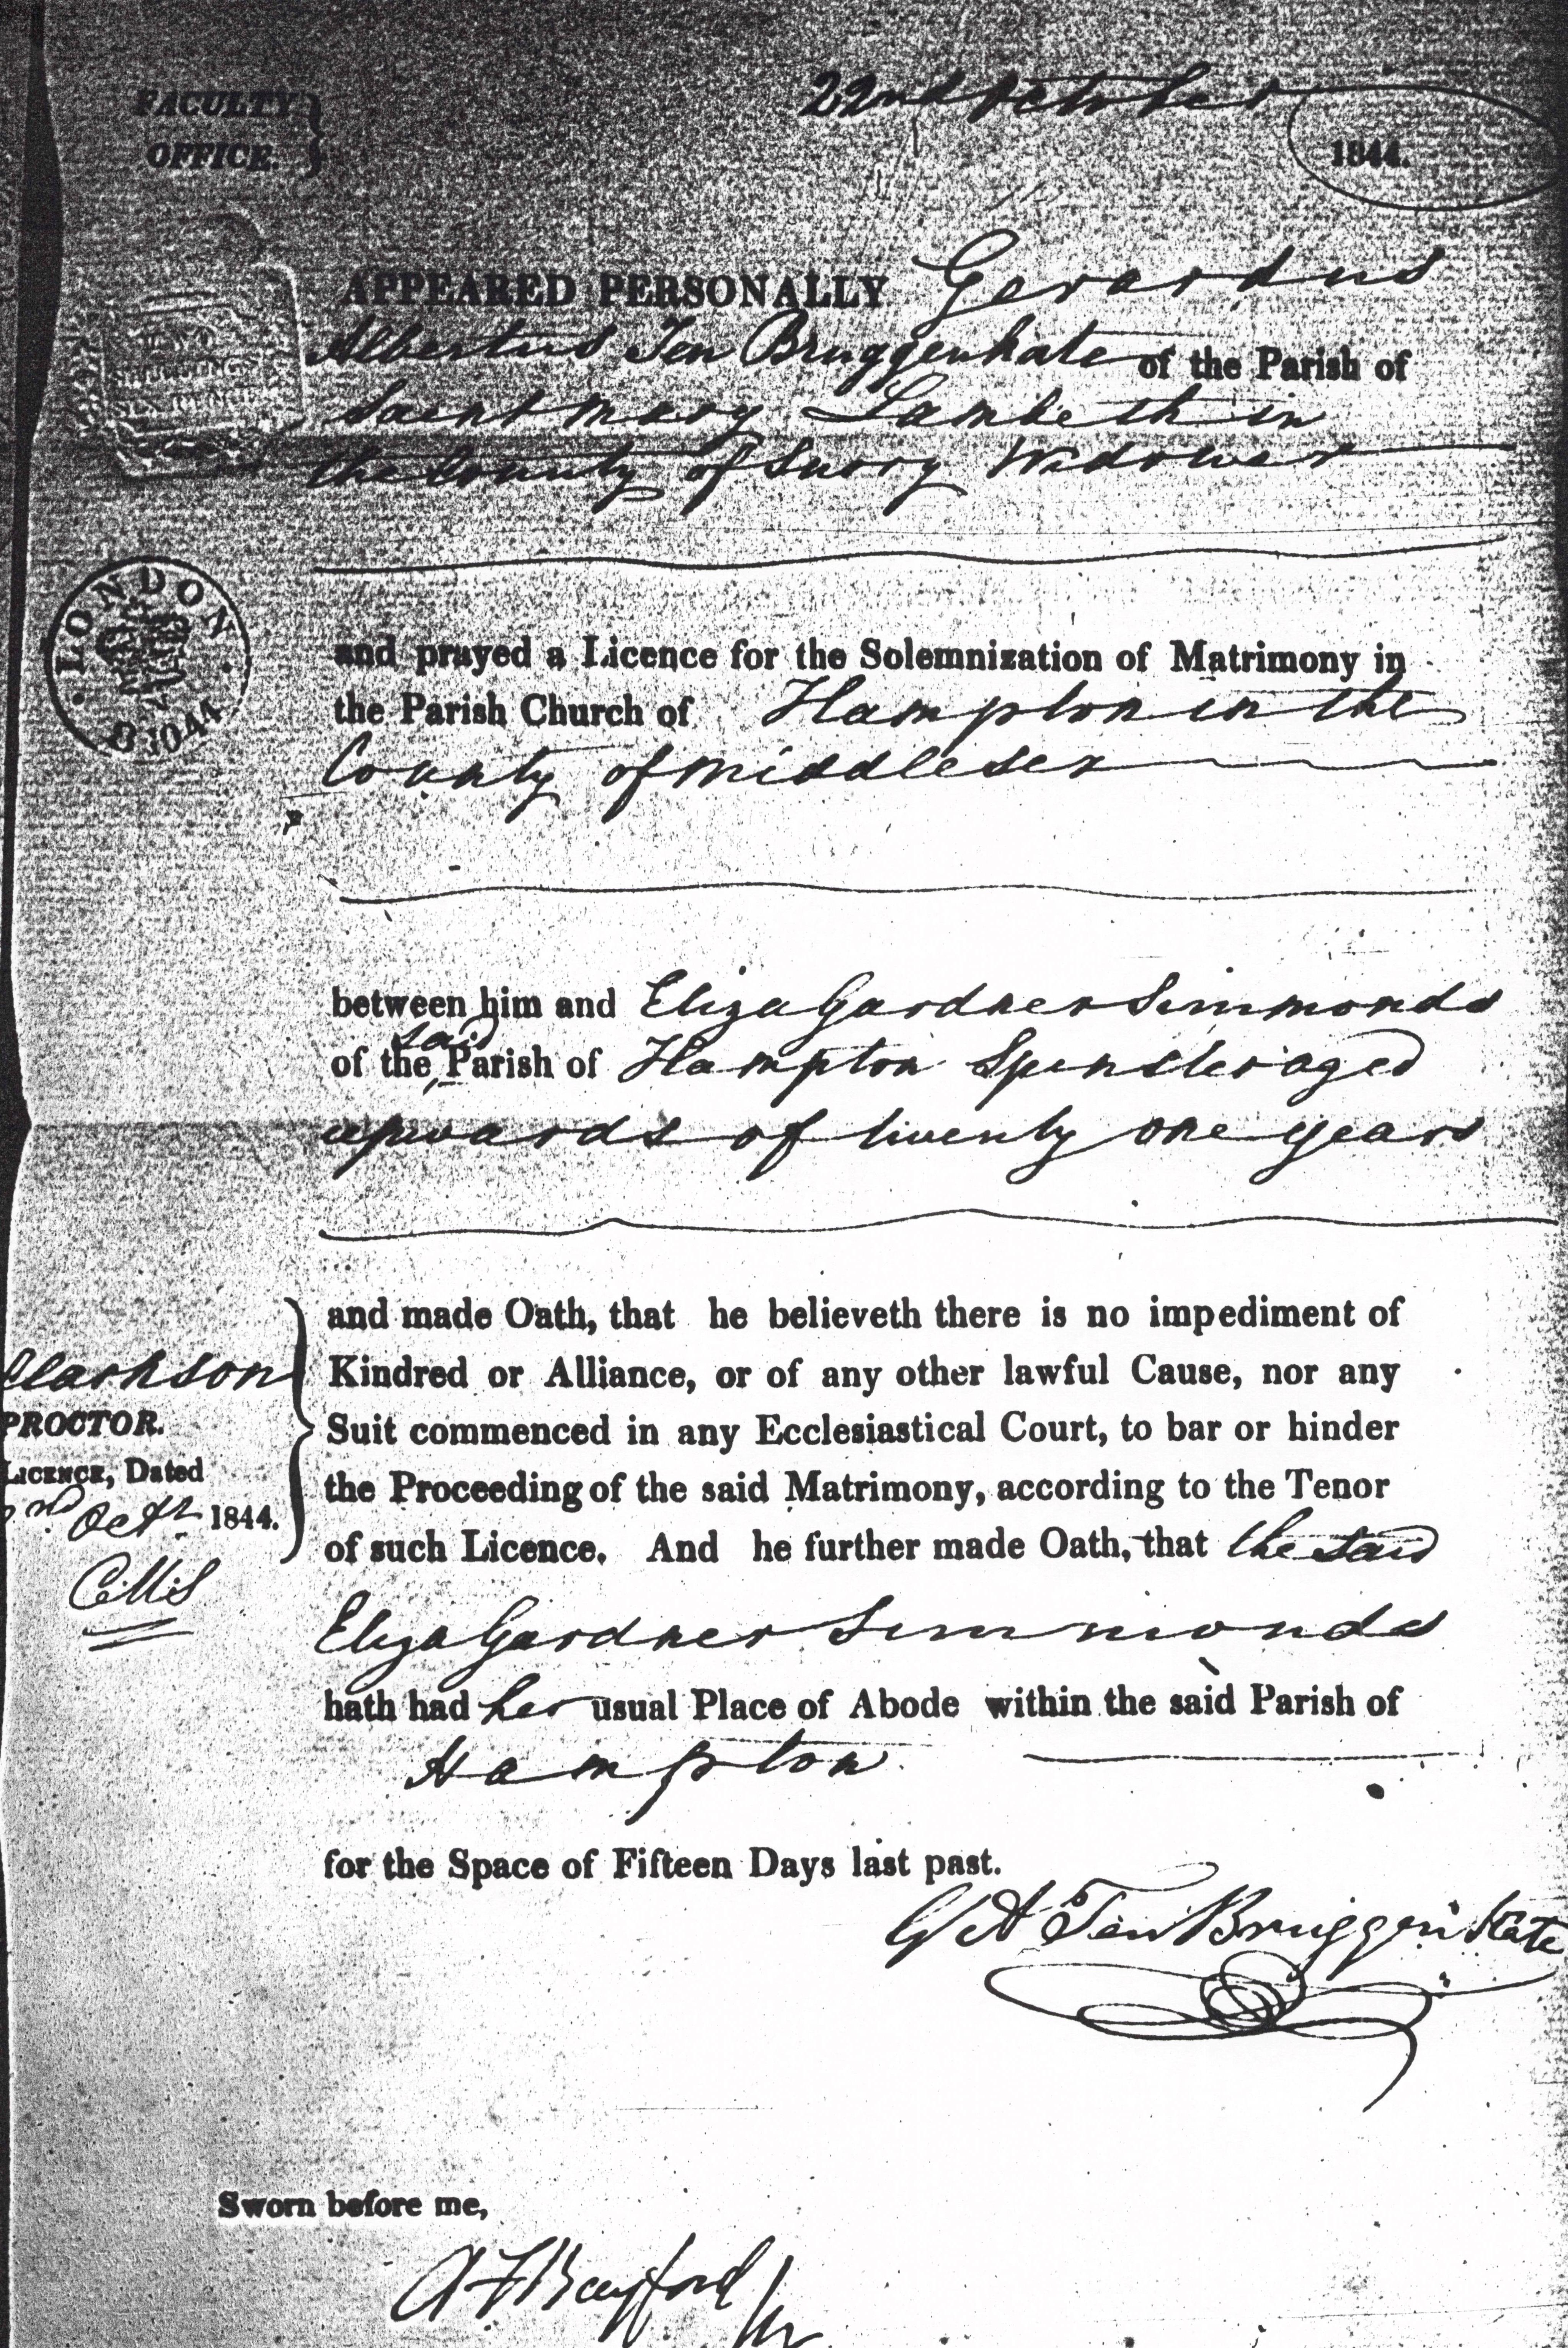 FACULTY
OFFICE.
22nd October
1844.
APPEARED PERSONALLY Gerardus
Albertus Ten Bruggenkate of the Parish of
Saint Mary Lambeth in
the County of Surry Widower
LONDON
1844
and prayed a Licence for the Solemnization of Matrimony in
the Parish Church of Hampton in the
County of Middlesex
between him and Eliza Gardner Simmonds
said
of the Parish of Hampton Spinster aged
upwards of twenty one years
and made Oath, that he believeth there is no impediment of
Kindred or Alliance, or of any other lawful Cause, nor any
Suit commenced in any Ecclesiastical Court, to bar or hinder
the Proceeding of the said Matrimony, according to the Tenor
of such Licence. And he further made Oath, that the said
Clarkson
PROCTOR.
LICENCE, Dated
nd Octr 1844.
Eliza Gardner Simmonds
hath had her usual Place of Abode within the said Parish of
Hampton
for the Space of Fifteen Days last past.
G A Ten Bruggen Kate
Sworn before me,
A F Bayford